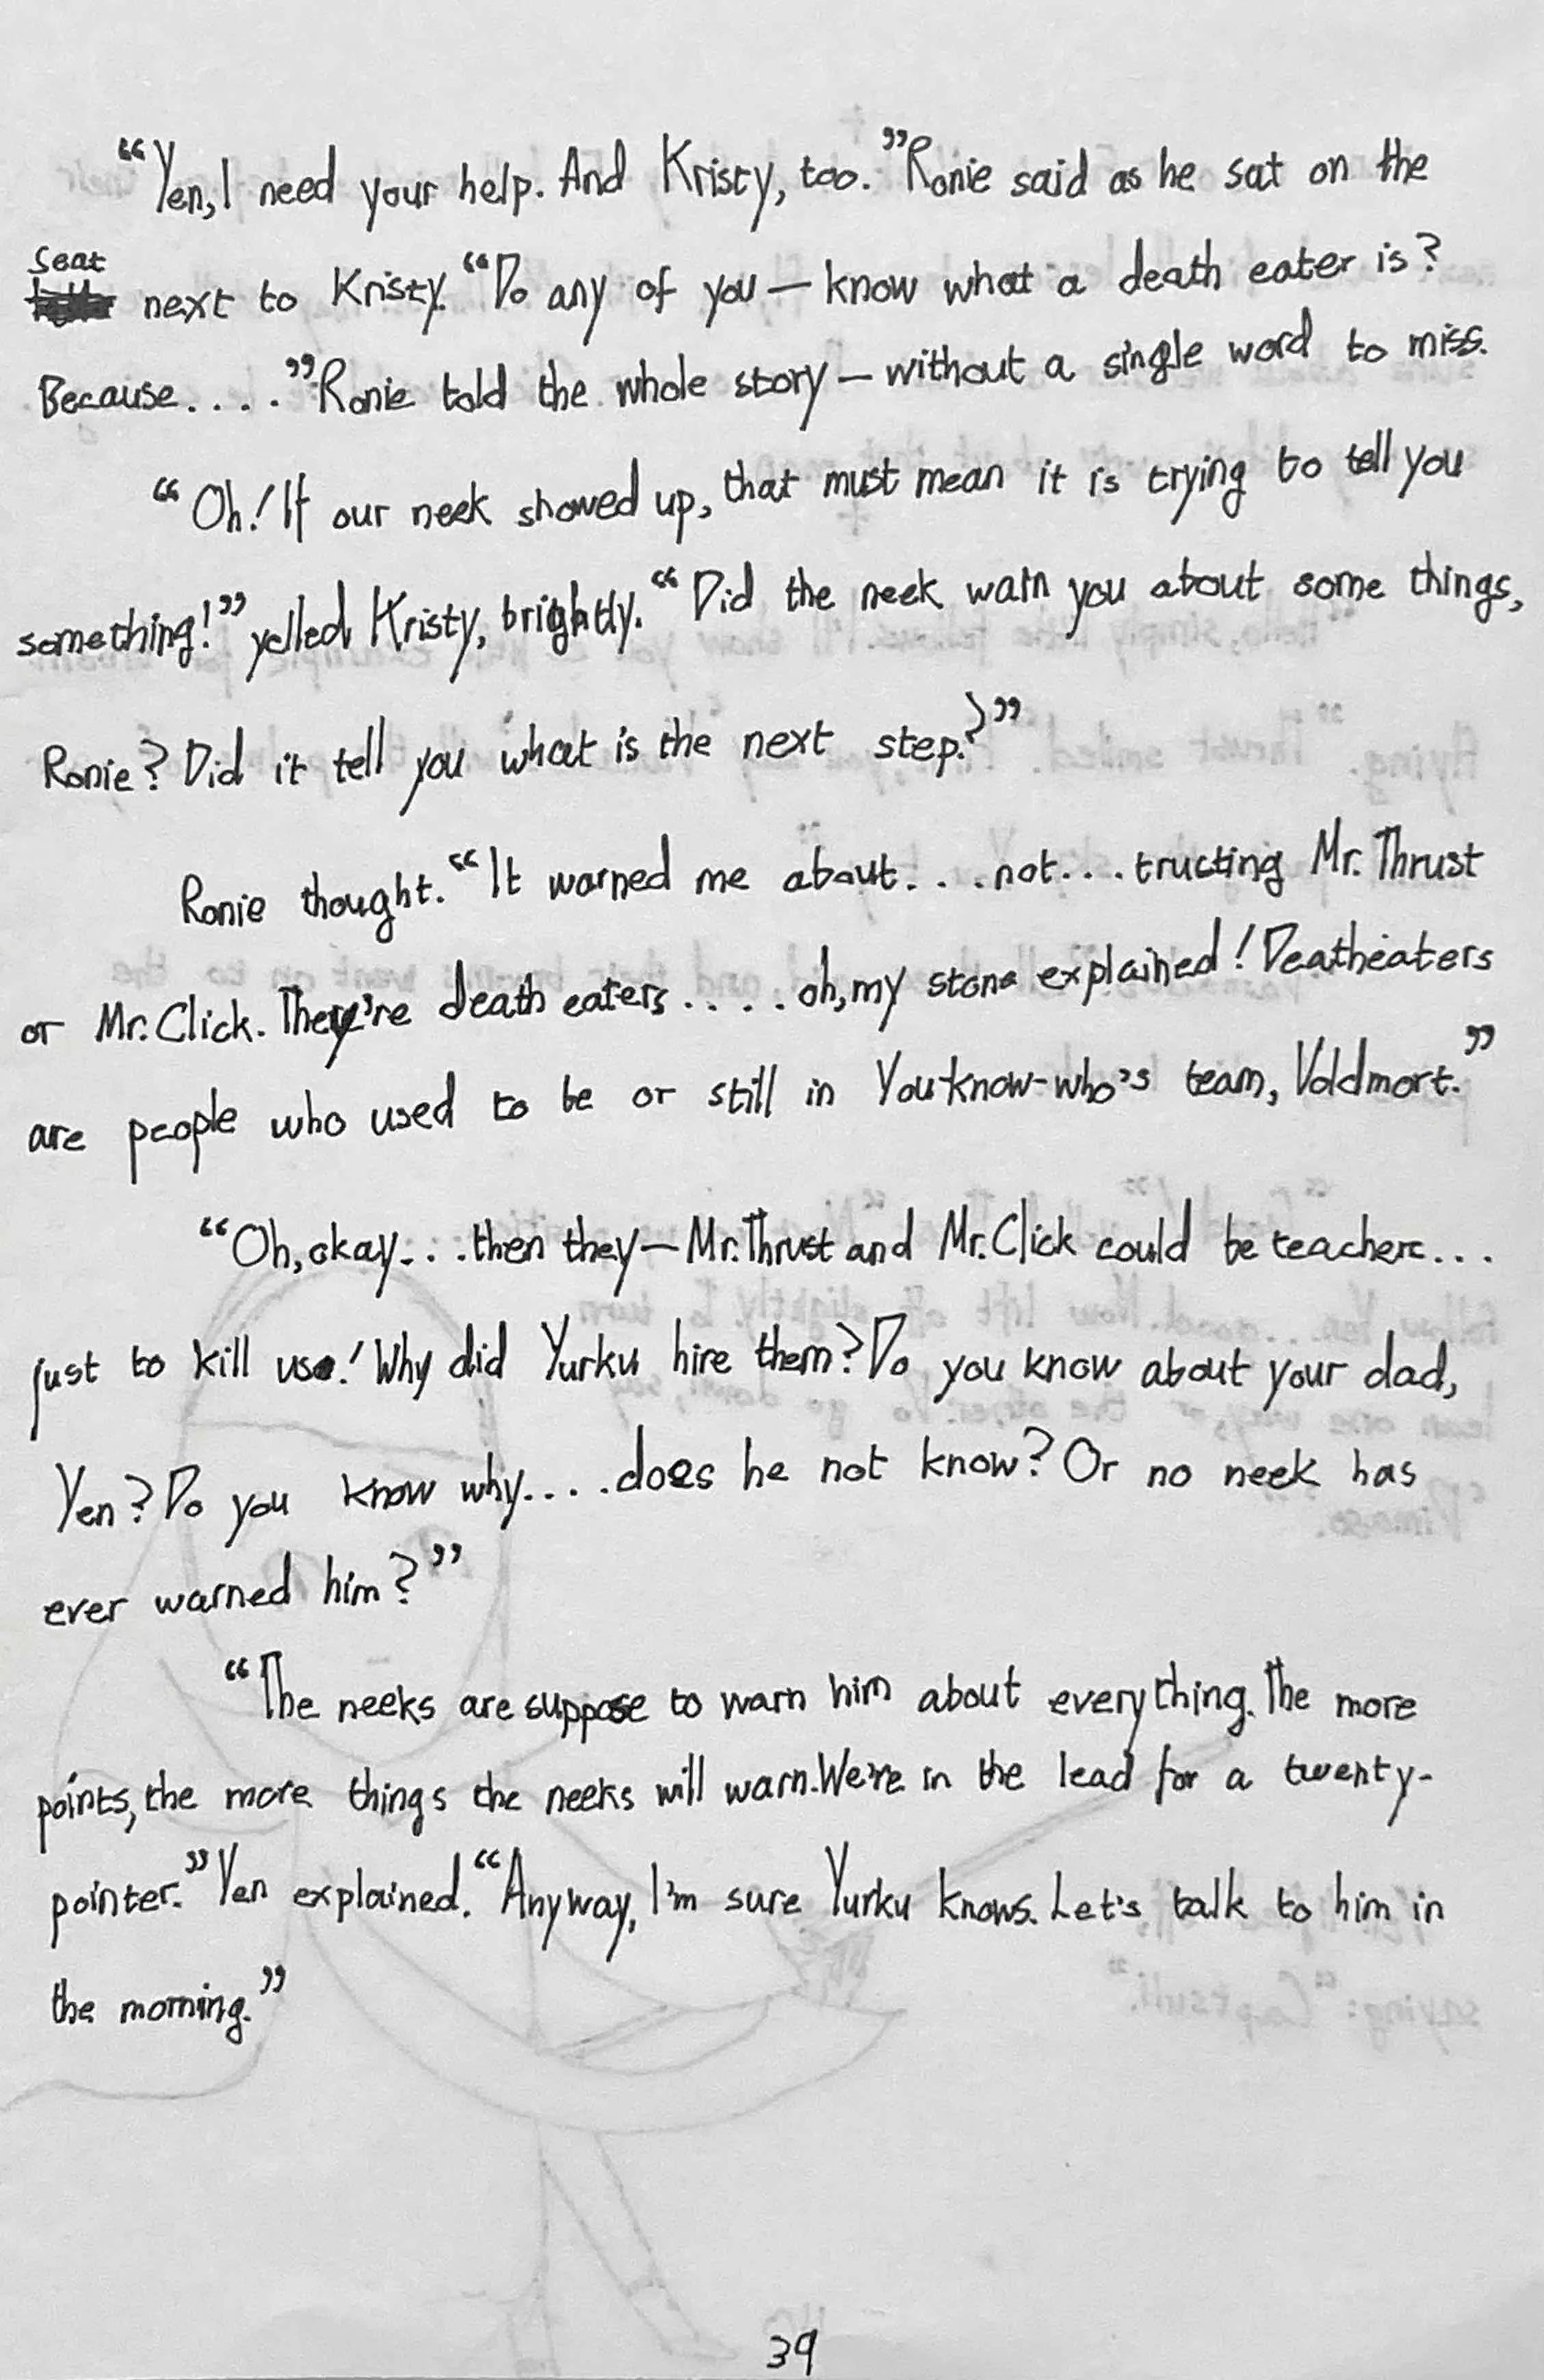 “Yen, I need your help. And Kristy, too.” Ronie said as he sat on the
seat next to Kristy. “Do any of you — know what a death eater is?
Because....” Ronie told the whole story — without a single word to miss.
“Oh! If our neek showed up, that must mean it is trying to tell you
something!” yelled Kristy, brightly. “Did the neek warn you about some things,
Ronie? Did it tell you what is the next step?”
Ronie thought. “It warned me about...not...tructing Mr. Thrust
or Mr. Click. They're death eaters.....oh, my stone explained! Deatheaters
are people who used to be or still in You-know-who's team, Voldmort.”
“Oh, okay...then they — Mr. Thrust and Mr. Click could be teachers...
just to kill us! Why did Yurku hire them? Do you know about your dad,
Yen? Do you know why....does he not know? Or no neek has
ever warned him?”
“The neeks are suppose to warn him about everything. The more
points, the more things the neeks will warn. We're in the lead for a twenty-
pointer.” Yen explained. “Anyway, I'm sure Yurku knows. Let's talk to him in
the morning.”
39